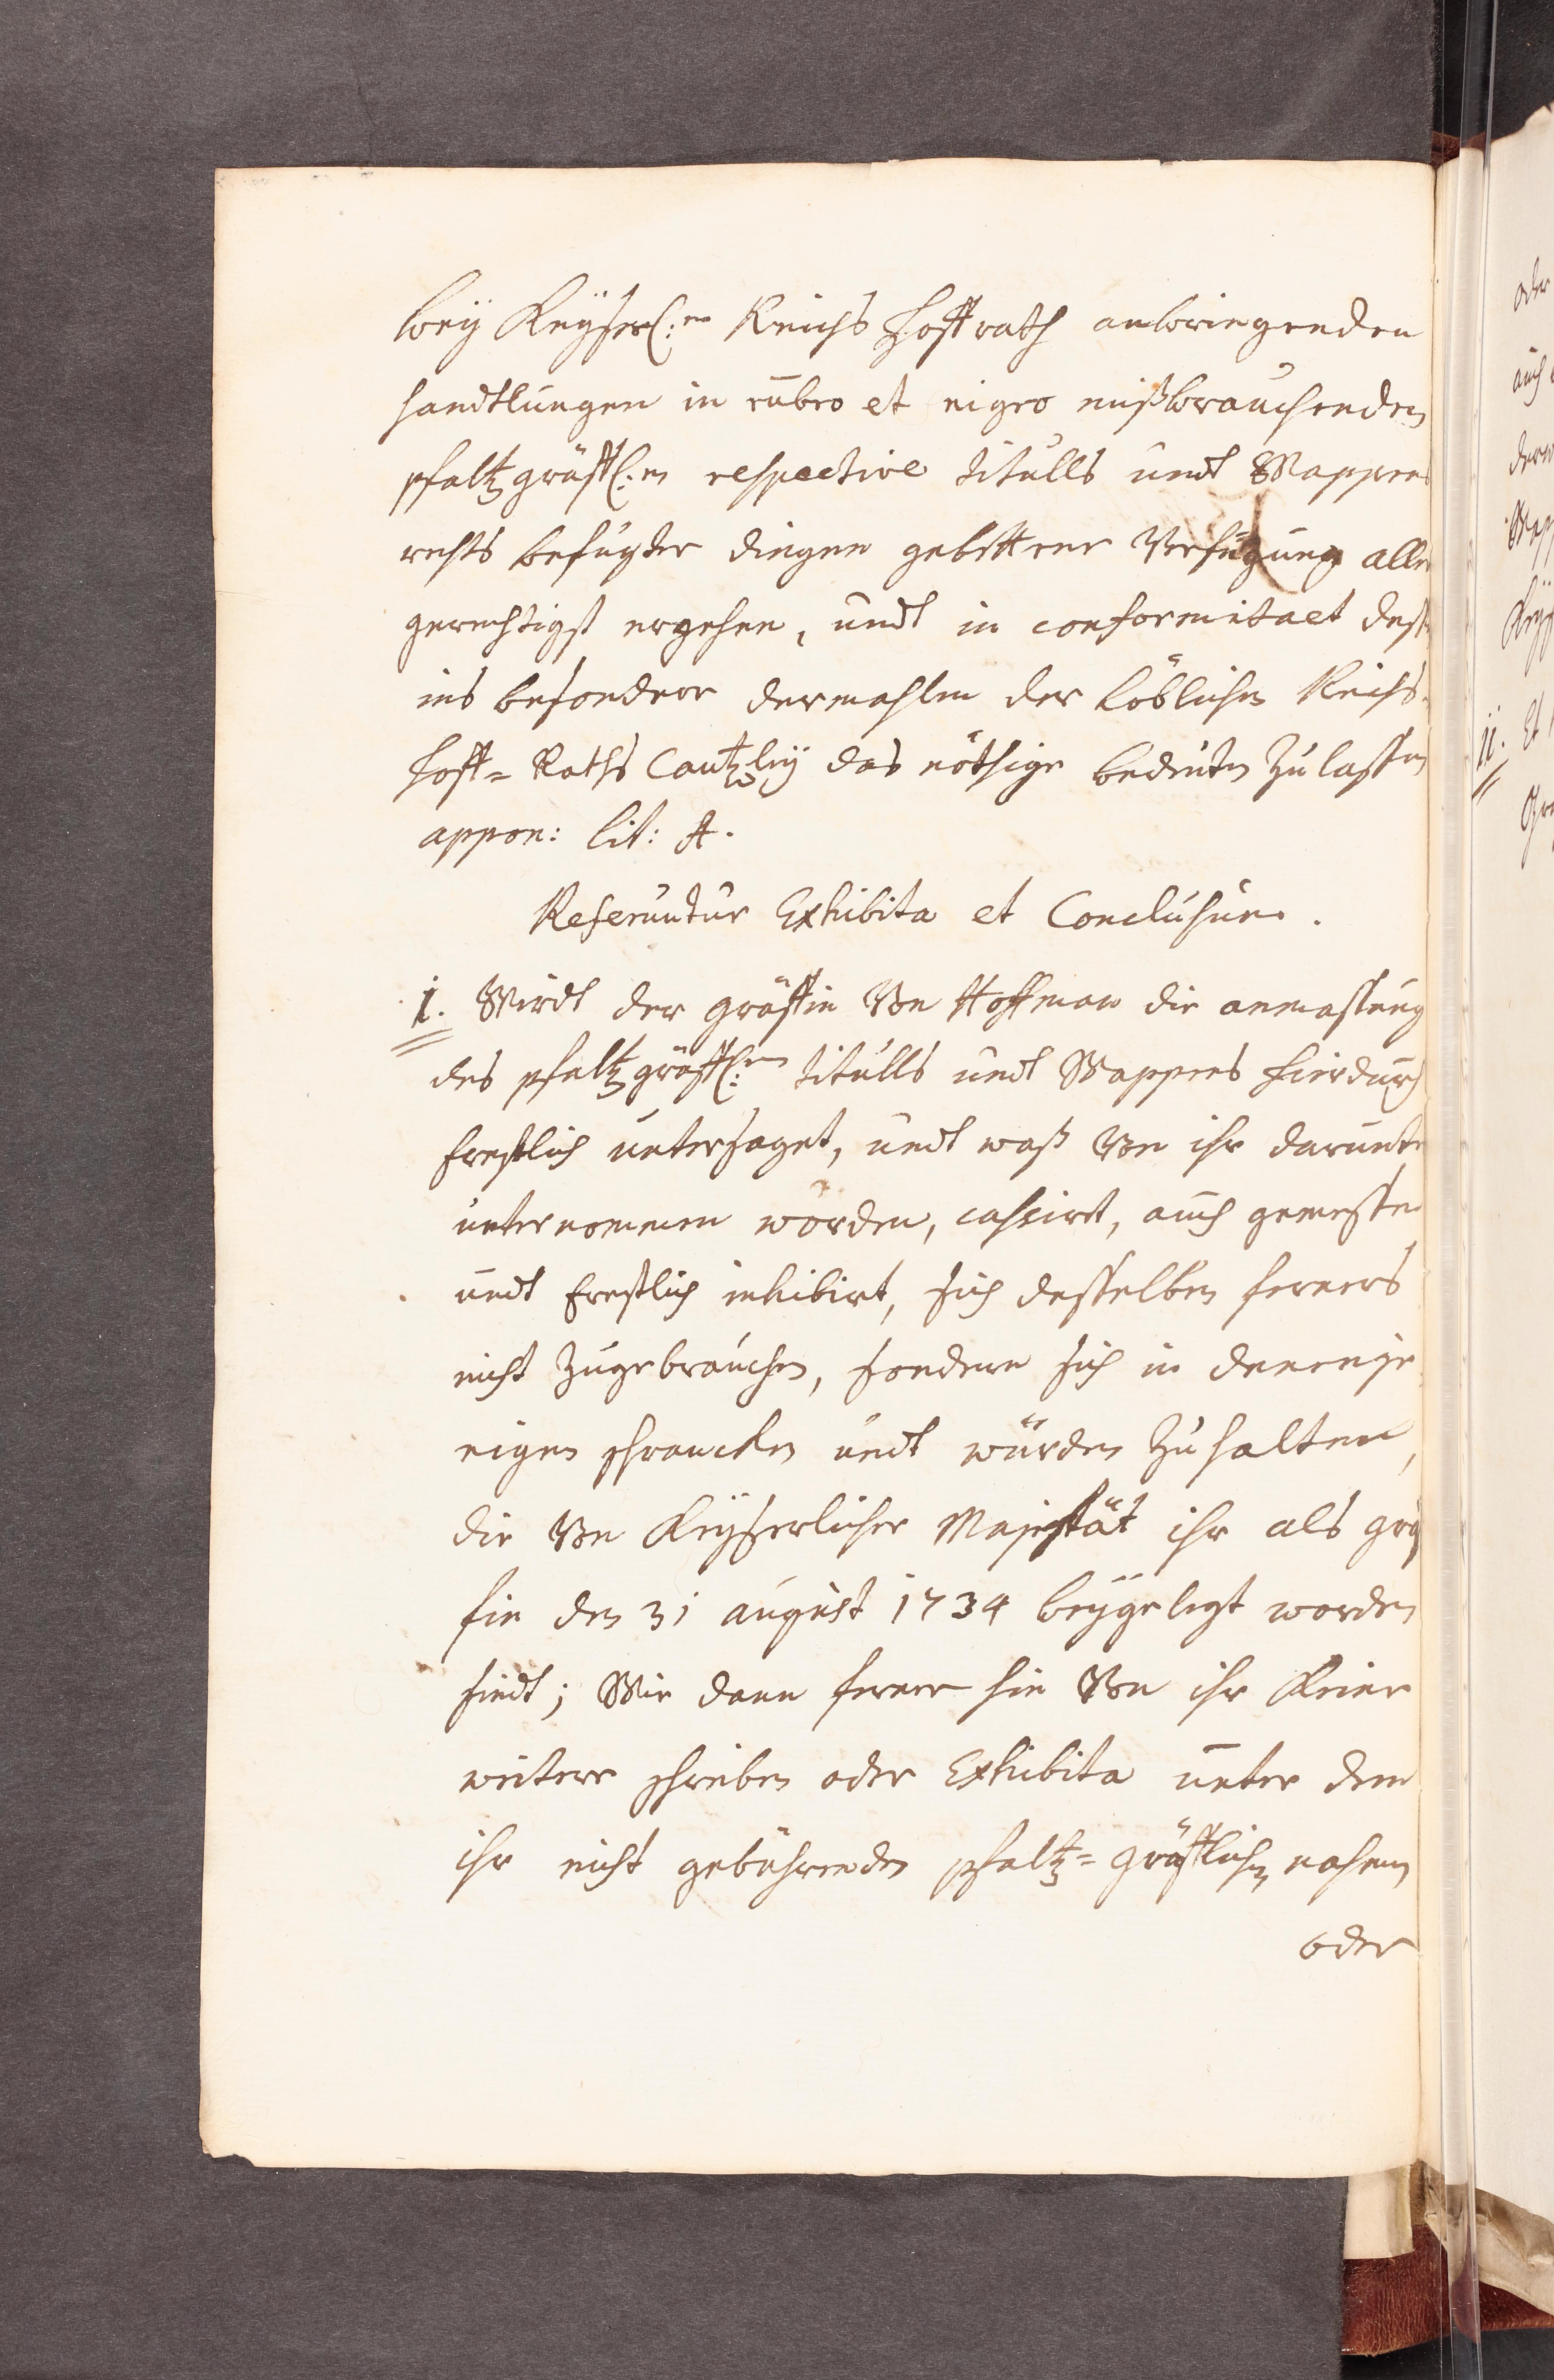 beÿ Keÿserl:en Reichs Hoffrath anbringenden
handtlungen in rubro et nigro mißbrauchenden
pfaltzgräffl:en respective titulls undt Wappens
rechts befugter dingen gebettene Verfugung aller
gerechtigst ergehen, undt in conformitaet dess
ins besondere dermahlen der Löblichen Reichs-
Hoff= Raths Cantzleÿ das nöthige bedeuten zu lassen
appon: Lit: A.
Referuntur Exhibita et Conclusum.
1. Wirdt der gräffin Von Hoffman die anmassung
des pfaltzgräffl:en titulls undt Wappens hierdurch
Ernstlich untersaget, undt waß Von ihr darunter
unternommen worden, cassirt, auch gemessen
undt Ernstlich inhibirt, sich desselben ferners
nicht zugebrauchen, sondern sich in denenje
nigen schrancken undt würden zu halten,
die Von Keÿserlicher Majestät ihr als grä
fin den 31 august 1734 beÿgelegt worden
sindt; Wie dann ferner hin Von ihr Keine
weitere schreiben oder Exhibita unter dem
ihr nicht gebührenden pfaltz= gräfflichen nahmen
oder
oder
auch
Wapp
Keÿs
11. Et